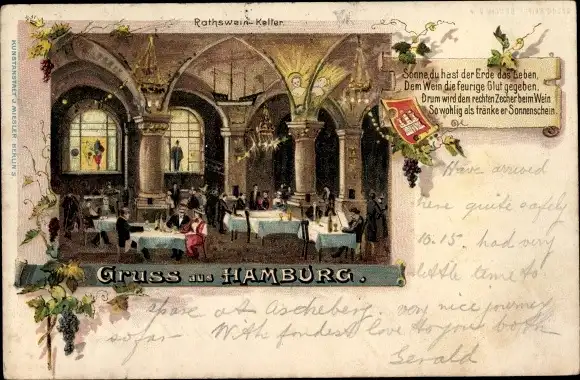 Rathswein-Keller.
Sonne, du hast der Erde das Leben,
Dem Wein die feurige Glut gegeben,
Drum wird dem rechten Zecher beim Wein
So wohlig als tränke er Sonnenschein.
GRUSS AUS HAMBURG.
KUNSTANSTALT J. MIESLER, BERLIN S.
Have arrived
here quite safely
10.15. had very
little time to
spare at Ascheberg. very nice journey
so far - With fondest love to you both
Gerald